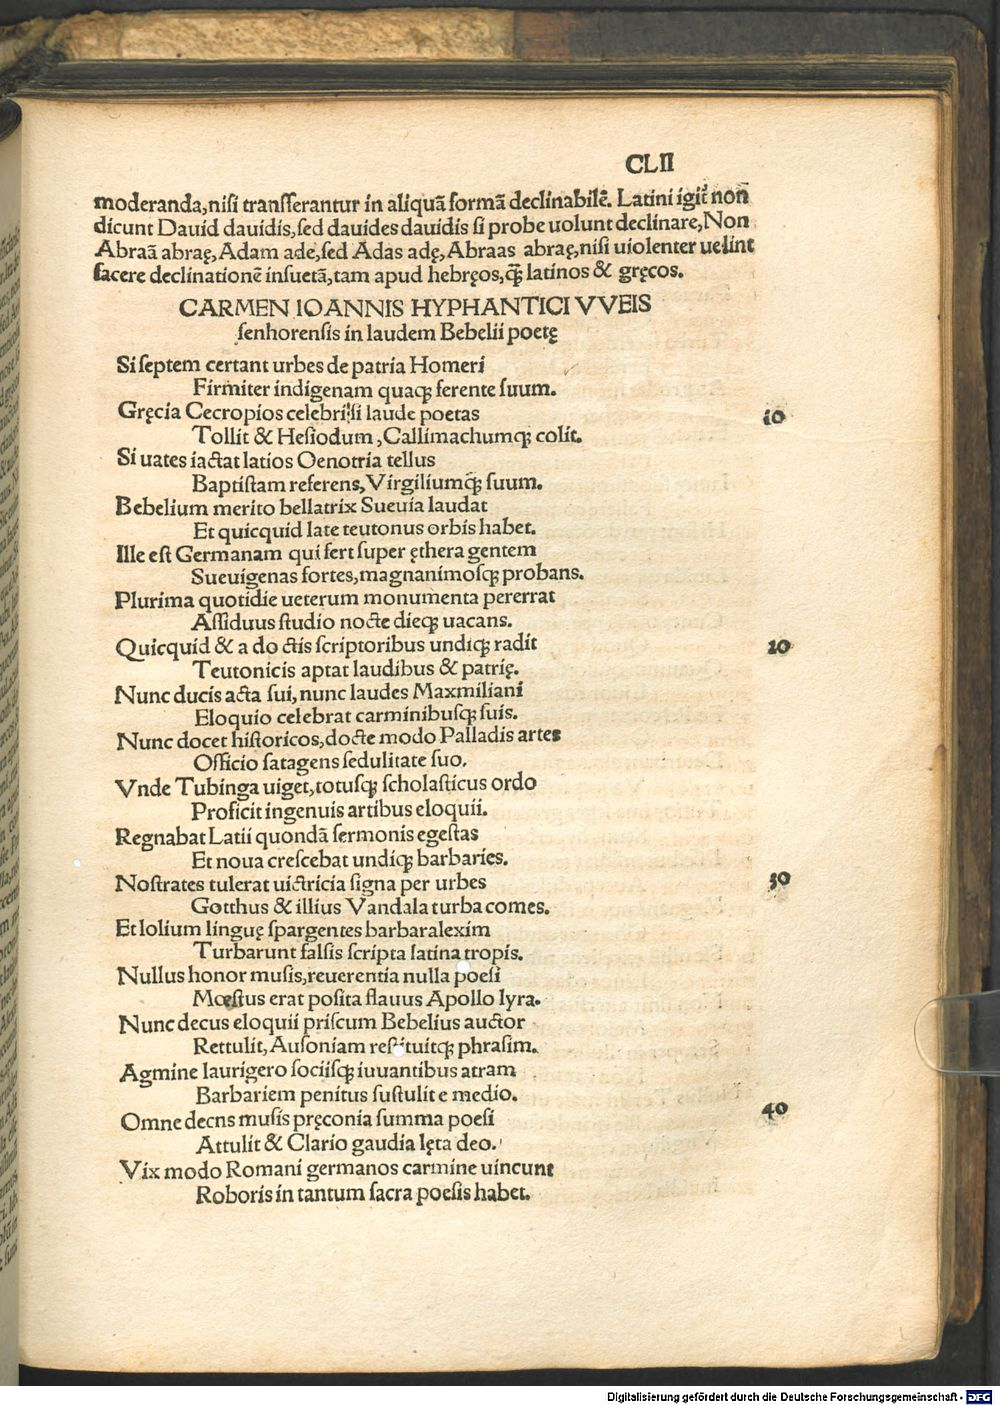 CLII
moderanda,nisi transferantur in aliquã formã declinabilẽ. Latini igit᷑ non
dicunt Dauid dauidis,sed dauides dauidis si probe uolunt declinare,Non
Abraã abrę,Adam ade,sed Adas adę,Abraas abraę,nisi uiolenter uelint
facere declinationẽ insuetã,tam apud hebręos,q̃ȝ latinos & gręcos.
CARMEN IOANNIS HYPHANTICI VVEIS
senhorensis in laudem Bebelii poetę
Si septem certant urbes de patria Homeri
Firmiter indigenam quaqȝ ferente suum.
Gręcia Cecropios celebri si laude poetas
10
Tollit & Hesiodum,Callimachumqȝ colit.
Si uates iactat latios Oenotria tellus
Baptistam referens,Virgiliumqȝ suum.
Bebelium merito bellatrix Sueuia laudat
Et quicquid late teutonus orbis habet.
Ille est Germanam qui fert super ęthera gentem
Sueuigenas fortes,magnanimosqȝ probans.
Plurima quotidie ueterum monumenta pererrat
Assiduus studio nocte dieqȝ uacans.
Quicquid & a do ctis scriptoribus undiqȝ radit
20
Teutonicis aptat laudibus & patrię.
Nunc ducis acta sui,nunc laudes Maxmiliani
Eloquio celebrat carminibusqȝ suis.
Nunc docet historicos,docte modo Palladis artes
Officio satagens sedulitate suo.
Vnde Tubinga uiget,totusqȝ scholasticus ordo
Proficit ingenuis artibus eloquii.
Regnabat Latii quondã sermonis egestas
Et noua crescebat undiqȝ barbaries.
Nostrates tulerat uictricia signa per urbes
30
Gotthus & illius Vandala turba comes.
Et lolium linguę spargentes barbaralexim
Turbarunt falsis scripta latina tropis.
Nullus honor musis,reuerentia nulla poesi
Mœstus erat posita flauus Apollo lyra.
Nunc decus eloquii priscum Bebelius auctor
Rettulit,Ausoniam restituitqȝ phrasim.
Agmine laurigero sociisqȝ iuuantibus atram
Barbariem penitus sustulit e medio.
Omne decns musis pręconia summa poesi
40
Attulit & Clario gaudia lęta deo.
Vix modo Romani germanos carmine uincunt
Roboris in tantum sacra poesis habet.
Digitalisierung gefördert durch die Deutsche Forschungsgemeinschaft - DFG